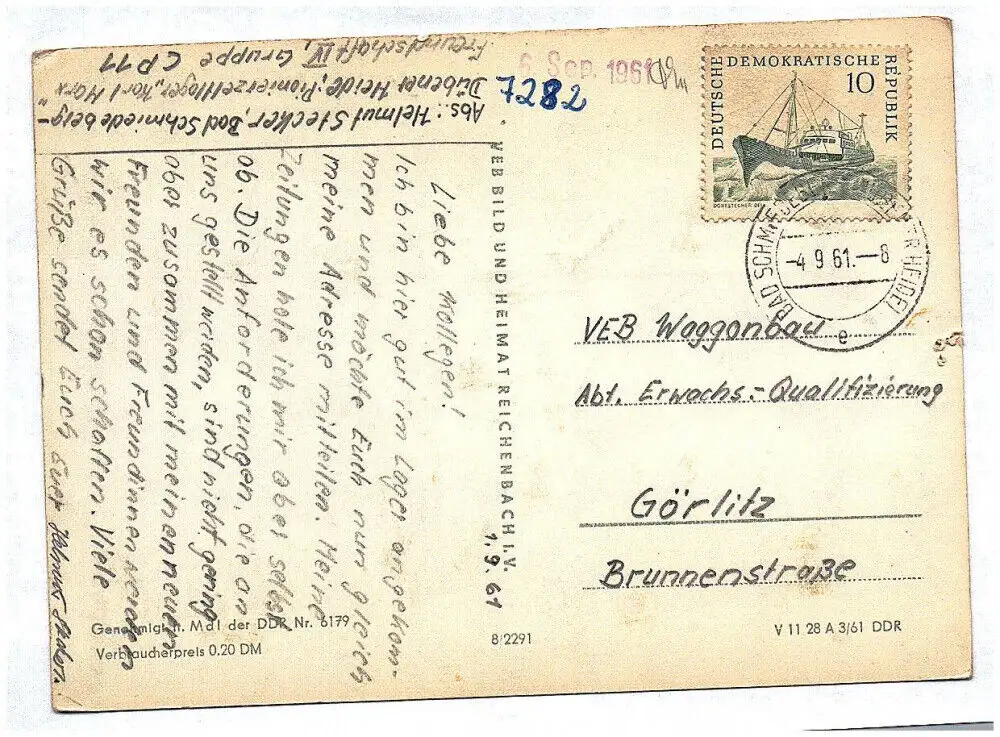 Abs.: Helmut Stecker, Bad Schmiedeberg-
Dübener Heide, Pionierzeltlager "Karl Marx"
Freundschaft IV, Gruppe CP 11
6. Sep. 1961
7282
DEUTSCHE DEMOKRATISCHE REPUBLIK
10
BAD SCHMIEDEBERG
HEIDE)
-4.9.61.--8
e
Liebe Kollegen!
Ich bin hier gut im Lager angekom-
men und möchte Euch nun gleich
meine Adresse mitteilen. Meine
Zeitungen hole ich mir aber selber
ab. Die Anforderungen, die an
uns gestellt werden, sind nicht gering
aber zusammen mit meinen neuen
Freunden und Freundinnen werden
wir es schon schaffen. Viele
Grüße sendet Euch Euer Helmut Stecker!
VEB BILD UND HEIMAT REICHENBACH I.V.
1.9.61
VEB Waggonbau
Abt. Erwachs.-Qualifizierung
Görlitz
Brunnenstraße
Genehmigt n. MdI der DDR Nr. 6179
Verbraucherpreis 0.20 DM
8/2291
V 11 28 A 3/61 DDR